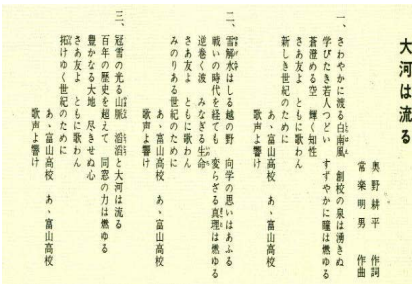 大河は流る
奥野耕平 作詞
常楽明男 作曲
一、
さわやかに渡る白南風 創校の泉は湧きぬ
学びたき若人つどい すずやかに瞳は燃ゆる
蒼澄める空 輝く知性
さあ友よ ともに歌わん
新しき世紀のために
あゝ富山高校 あゝ富山高校
歌声よ響け
二、
雪解水はしる越の野 向学の思いはあふる
戦いの時代を経ても 変らざる真理は燃ゆる
逆巻く波 みなぎる生命
さあ友よ ともに歌わん
みのりある世紀のために
あゝ富山高校 あゝ富山高校
歌声よ響け
三、
冠雪の光る山脈 滔滔と大河は流る
百年の歴史を超えて 同窓の力は燃ゆる
豊かなる大地 尽きせぬ心
さあ友よ ともに歌わん
拓けゆく世紀のために
あゝ富山高校 あゝ富山高校
歌声よ響け